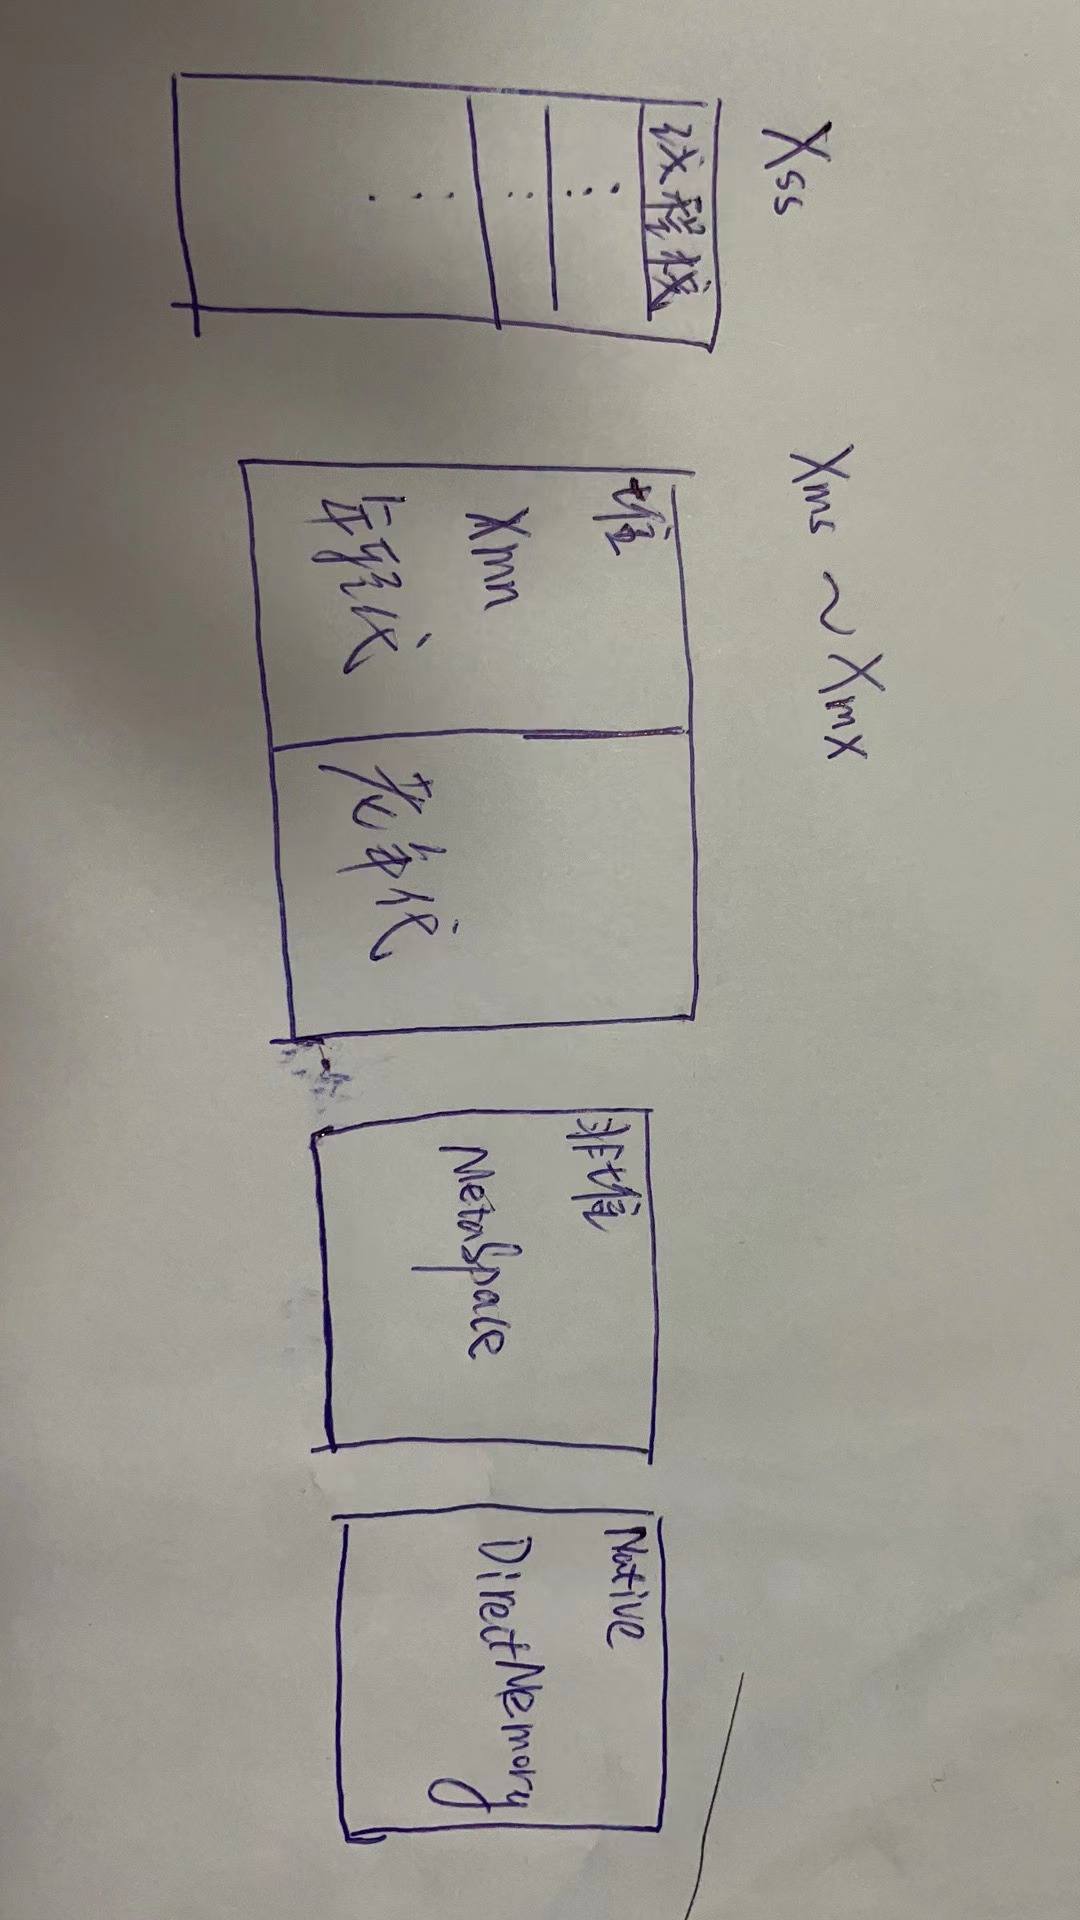 Xss
线程栈
Xms ~ Xmx
堆
Xmn
年轻代
老年代
非堆
MetaSpace
Native
DirectMemory